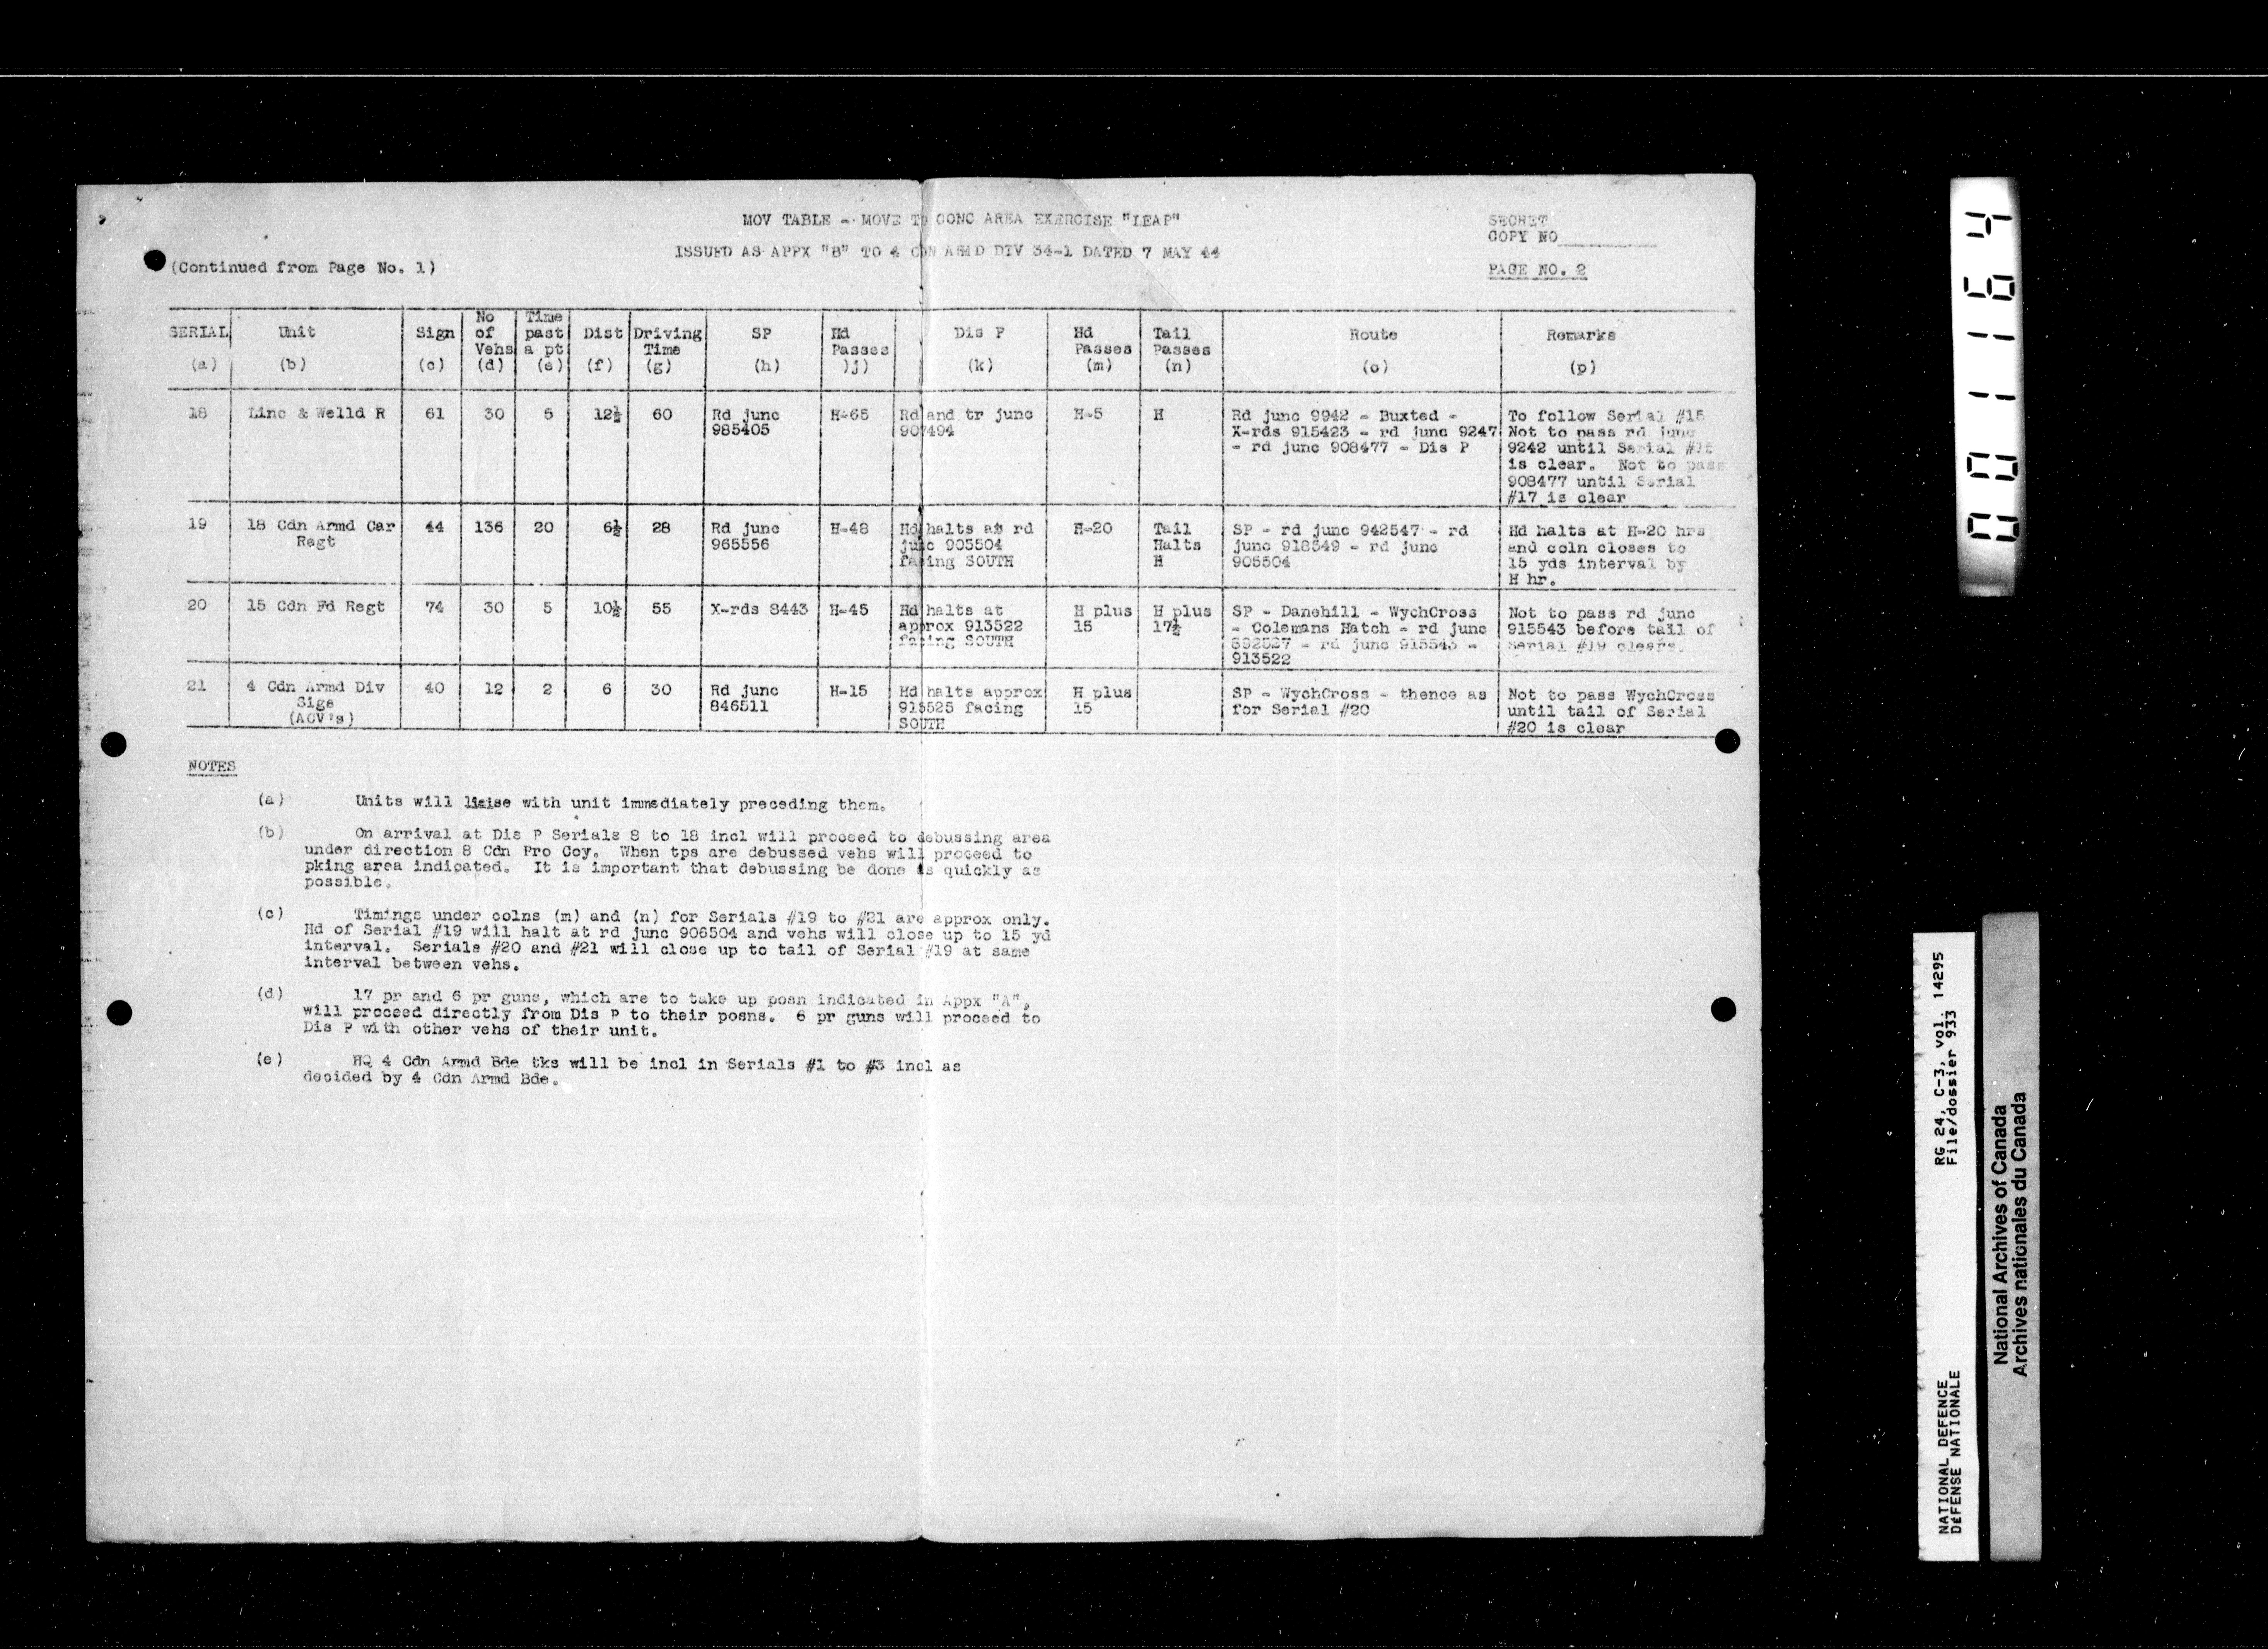 MOV TABLE - MOVE TO CONC AREA EXERCISE "LEAP"
ISSUED AS APPX "B" TO 4 CDN ARMD DIV 34-1 DATED 7 MAY 44
SECRET
COPY NO
PAGE NO. 2
(Continued from Page No. 1)
SERIAL (a)
Unit (b)
Sign (c)
No of Vehs (d)
Time past a pt (e)
Dist (f)
Driving Time (g)
SP (h)
Hd Passes )j)
Dis P (k)
Hd Passes (m)
Tail Passes (n)
Route (o)
Remarks (p)
18
Linc & Welld R
61
30
5
12½
60
Rd junc
985405
H-65
Rd and tr junc
907494
H-5
H
Rd junc 9942 - Buxted -
X-rds 915423 - rd junc 9247
- rd junc 908477 - Dis P
To follow Serial #15
Not to pass rd junc
9242 until Serial
is clear. Not to pass
908477 until Serial
#17 is clear
19
18 Cdn Armd Car
Regt
44
136
20
6½
28
Rd junc
965556
H-48
Hd halts at rd
junc 905504
facing SOUTH
H-20
Tail
Halts
H
SP - rd junc 942547 - rd
junc 918549 - rd junc
905504
Hd halts at H-20 hrs
and coln closes to
15 yds interval by
H hr.
20
15 Cdn Fd Regt
74
30
5
10½
55
X-rds 8443
H-45
Hd halts at
approx 913522
facing SOUTH
H plus
15
H plus
17½
SP - Danehill - WychCross
- Colemans Hatch - rd junc
- rd junc 915543 -
913522
Not to pass rd junc
915543 before tail of
Serial #19 clears.
21
4 Cdn Armd Div
Sigs
(ACV's)
40
12
2
6
30
Rd junc
846511
H-15
Hd halts approx
915525 facing
SOUTH
H plus
15
SP - WychCross - thence as
for Serial #20
Not to pass WychCross
until tail of Serial
#20 is clear
NOTES
(a) Units will liaise with unit immediately preceding them.
(b) On arrival at Dis P Serials 8 to 18 incl will proceed to debussing area
under direction 8 Cdn Pro Coy. When tps are debussed vehs will proceed to
pking area indicated. It is important that debussing be done as quickly as
possible.
(c) Timings under colns (m) and (n) for Serials #19 to #21 are approx only.
Hd of Serial #19 will halt at rd junc 906504 and vehs will close up to 15 yd
interval. Serials #20 and #21 will close up to tail of Serial #19 at same
interval between vehs.
(d) 17 pr and 6 pr guns, which are to take up posn indicated in Appx "A",
will proceed directly from Dis P to their posns. 6 pr guns will proceed to
Dis P with other vehs of their unit.
(e) HQ 4 Cdn Armd Bde tks will be incl in Serials #1 to #3 incl as
decided by 4 Cdn Armd Bde.
0011164
RG 24, C-3, vol. 14295
File/dossier 933
NATIONAL DEFENCE
DÉFENSE NATIONALE
National Archives of Canada
Archives nationales du Canada